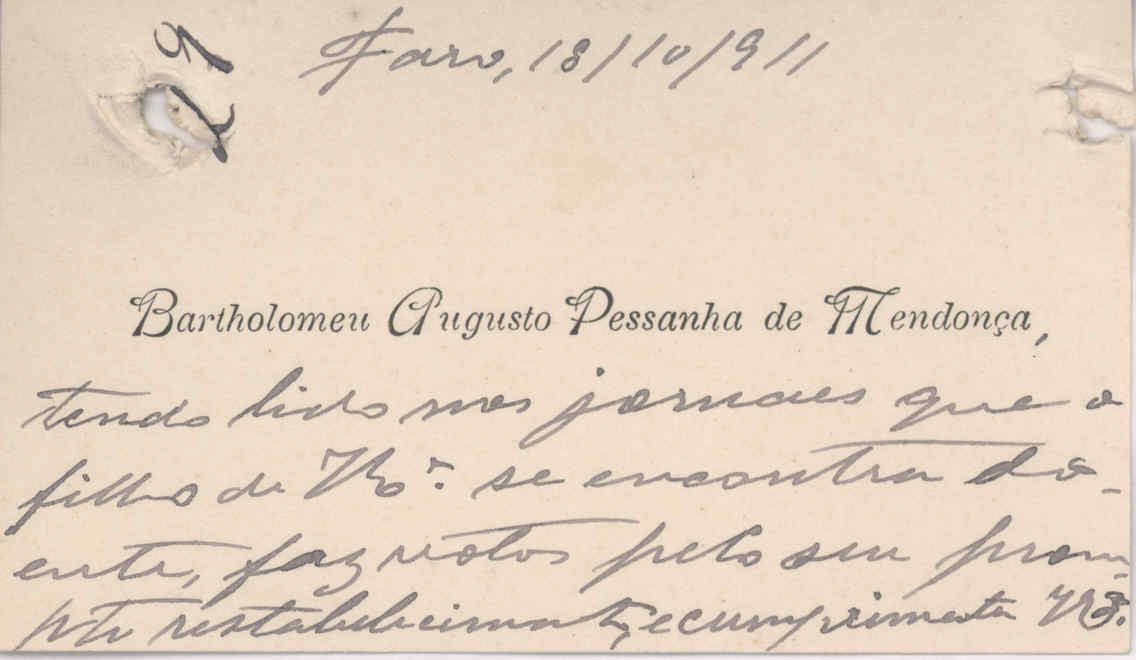 Faro, 18/10/911
Bartholomeu Augusto Pessanha de Mendonça,
tendo lido nos jornaes que o
filho de se encontra do-
ente, faz votos pelo seu prom-
pto restabelecimento, e cumprimenta